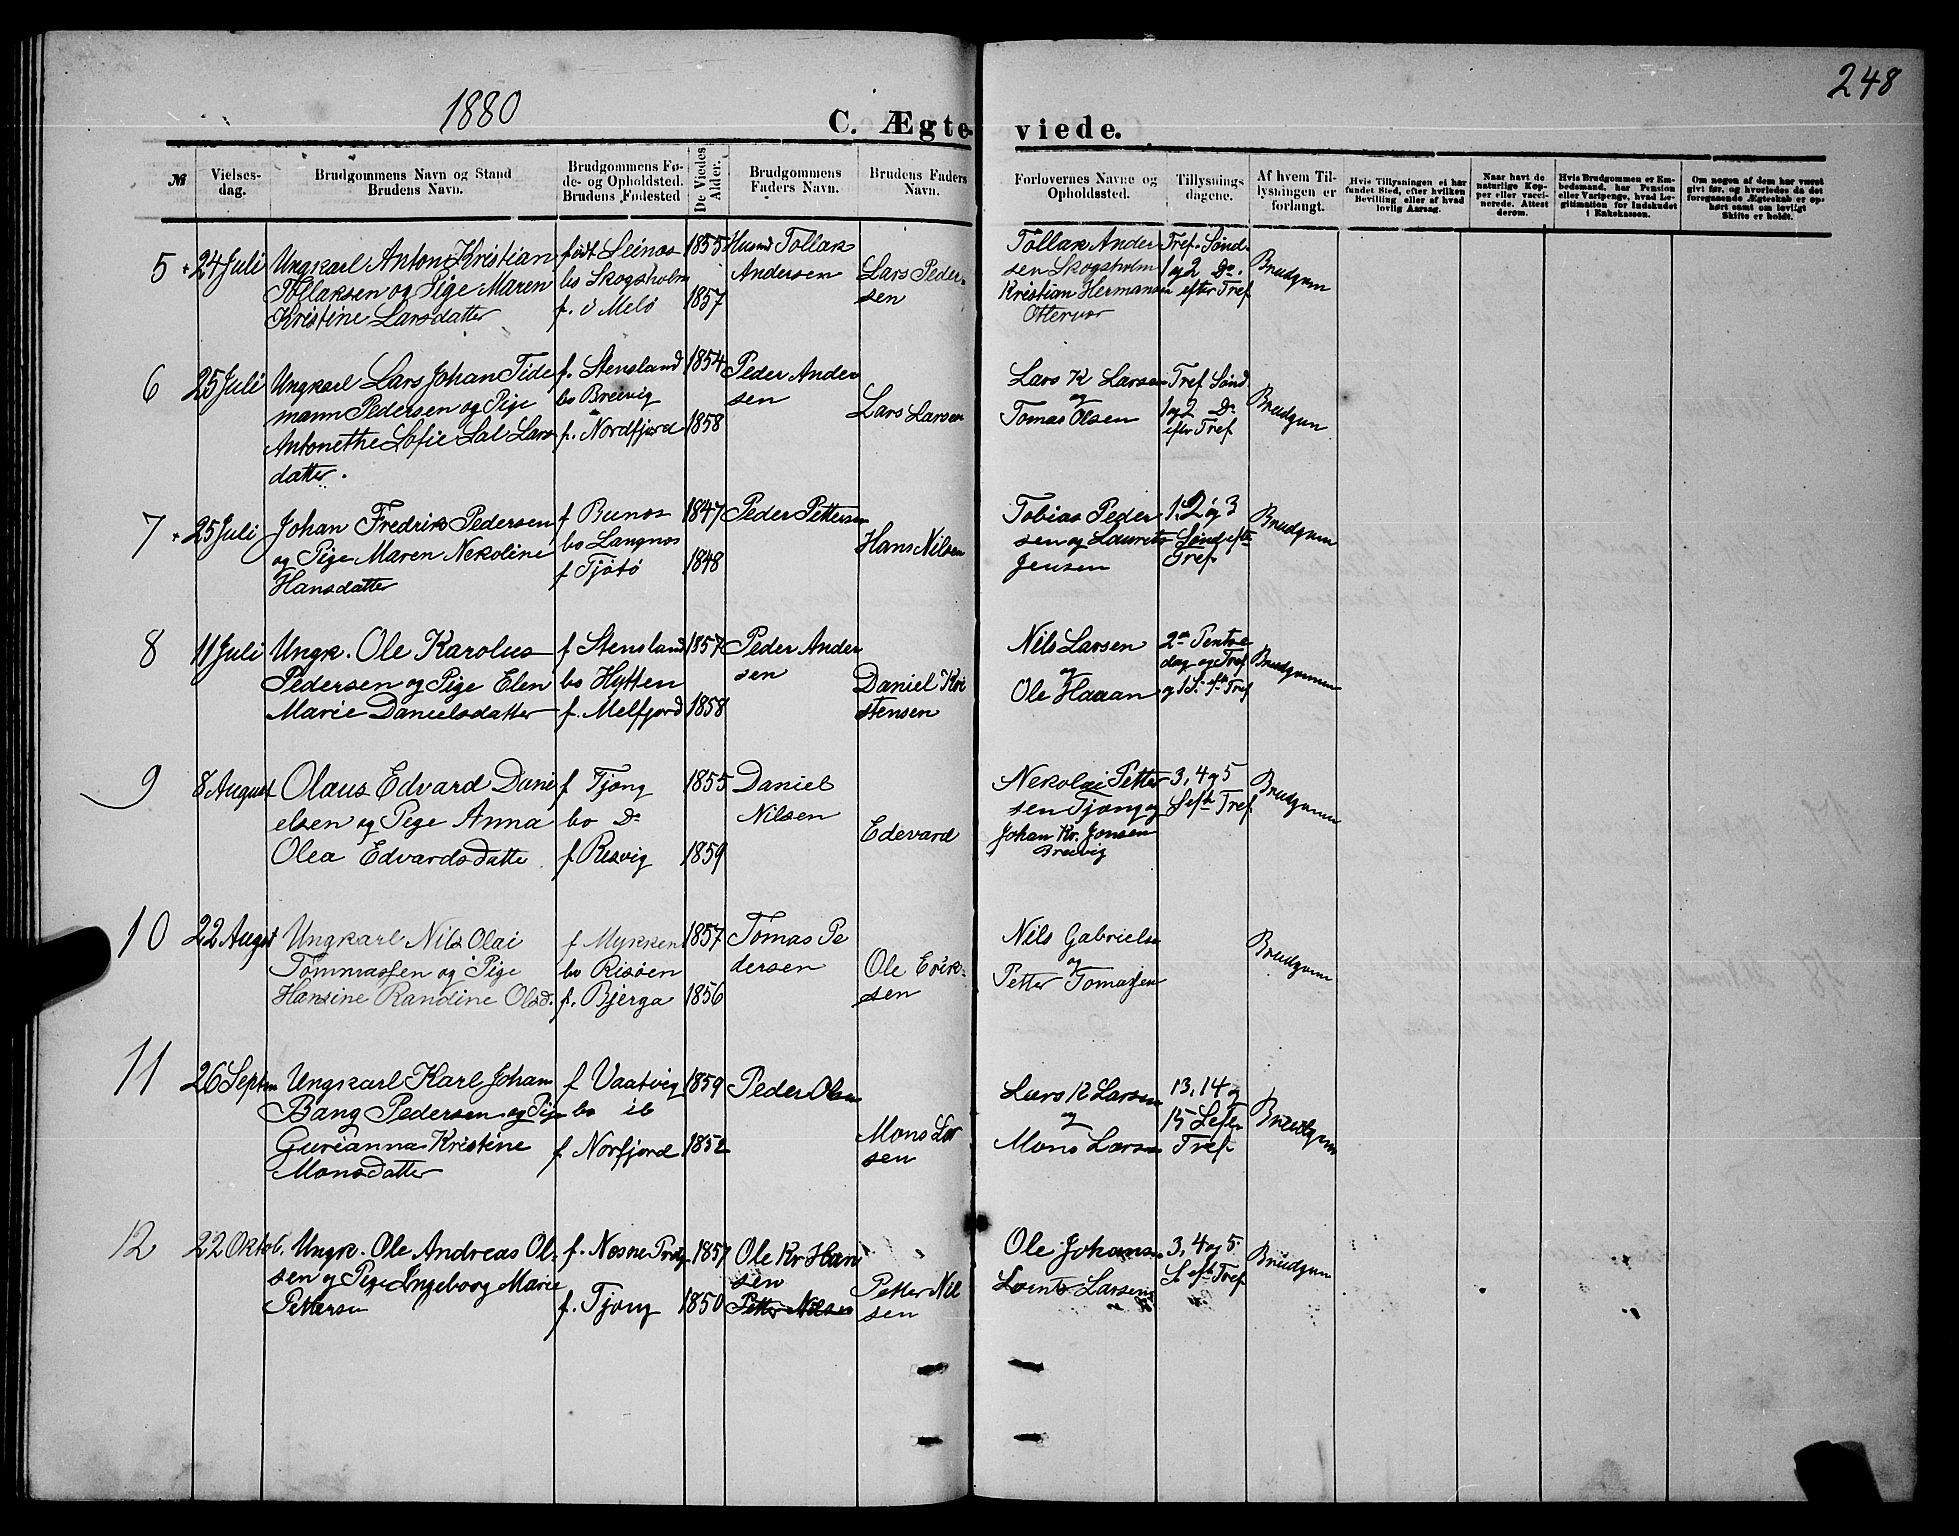 1880
248
C. Ægteviede.
№
Vielses-
dag.
Brudgommens Navn og Stand
Brudens Navn.
Brudgommens Fø-
de- og Opholdsted.
Brudens Fødested
De Viedes
Alder.
Brudgommens
Faders Navn.
Brudens Faders
Navn.
Forlovernes Navne og
Opholdssted.
Tillysnings-
dagene.
Af hvem Til-
lysningen er
forlangt.
Hvis Tillysningen ei har
fundet Sted, efter hvilken
Bevilling eller af hvad
lovlig Aarsag.
Naar havt de
naturlige Kop-
per eller vacci-
nerede. Attest
derom.
Hvis Brudgommen er Em-
bedsmand, har Pension
eller Vartpenge, hvad Le-
gitimation for Indskudet
i Enkekassen.
Om nogen af dem har været
givt før, og hvorledes da det
foregaaende Ægteskab er op-
hørt samt om lovligt
Skifte er holdt.
5
24 Juli
Ungkarl Anton Kristian
Tollaksen og Pige Maren
Kristine Larsdatter
født Seinos
bo Skogsholm
f. i Melø
1855
1857
Husmd Tollak
Andersen
Lars Peder-
sen
Tollak Ander
sen Skogsholm
Kristian Hermansen
Ottervær
Tref. Sønd.
1 og 2 Do.
efter Tref
Brudgum
6
25 Juli
Ungkarl Lars Johan Tide
mann Pedersen og Pige
Antonethe Sofie Sal Lars
datter.
f. Stensland
bo Breivig
f. Nordfjord
1854
1858
Peder Ander
sen
Lars Larsen
Lars K Larsen
og
Tomas Olsen
Tref Sønd
1 og 2 Do
efter Tref
Brudgum
7
25 Juli
Johan Fredrik Pedersen
og Pige Maren Nekoline
Hansdatter
f Bunos
bo Langnos
f Tjøtø
1847
1848
Peder Pettersen
Hans Nilsen
Tobias Peder
sen og Laurits
Jensen
1. 2 og 3
Sønd eftr
Tref
Brudgum
8
11 Juli
Ungk. Ole Karolus
Pedersen og Pige Elen
Marie Danielsdatter
f Stensland
bo Hytten
f. Melfjord
1857
1858
Peder Ander
sen
Daniel Kri
stensen
Nils Larsen
og
Ole Haaan
2en Pentse
dag og Tref
og 1 S. eftr Tref
Brudgummen
9
8 August
Olaus Edvard Dani
elsen og Pige Anna
Olea Edvardsdatte
f Tjong
bo Do
f. Resvig
1855
1859
Daniel
Nilsen
Edevard
Nekolai Petter
sen Tjong og
Johan Kr. Jonsen
Breivig
3, 4 og 5
S eftr Tref
Brudgum
10
22 August
Ungkarl Nils Olai
Tommassen og Pige
Hansine Randine Olsd.
f Mykken
bo Risøen
f. Bjerga
1857
1856
Tomas Pe
dersen
Ole Erik-
sen
Nils Gabrielsen
og
Petter Tomassen
Brudgum
11
26 Septem
Ungkarl Karl Johan
Bang Pedersen og Pige
Gurianna Kristine
Monsdatter
f Vaatvig
bo ib
f Norfjord
1859
1852
Peder Olsen
Mons Lar
sen
Lars K Larsen
og
Mons Larsen
13, 14 og
15 S efter
Tref
Brudgum
12
22 Oktob.
Ungk. Ole Andreas Ol-
sen og Pige Ingeborg Marie
Pettersen
f. Nesne Præg
f. Tjong
1851
1850
Ole Kr Han
sen
Petter Nilsen
Petter Nil
sen
Ole Johans.
Larsen
3, 4 og 5
S. eftr Tref
Brudgum